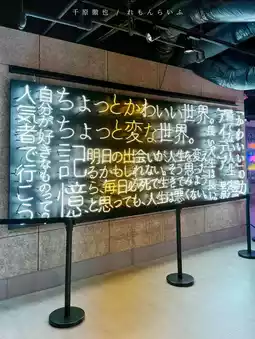 千原徹也 / れもんらいふ
ちょっとかわいい世界。
ちょっと変な世界。
自分が好きなものって
人気者で行こう
記憶
明日の出会いが人生を変え
るかもしれない。そう思った
ら、毎日必死で生きて
と思っても、人生は悪くない。
かわいいの力